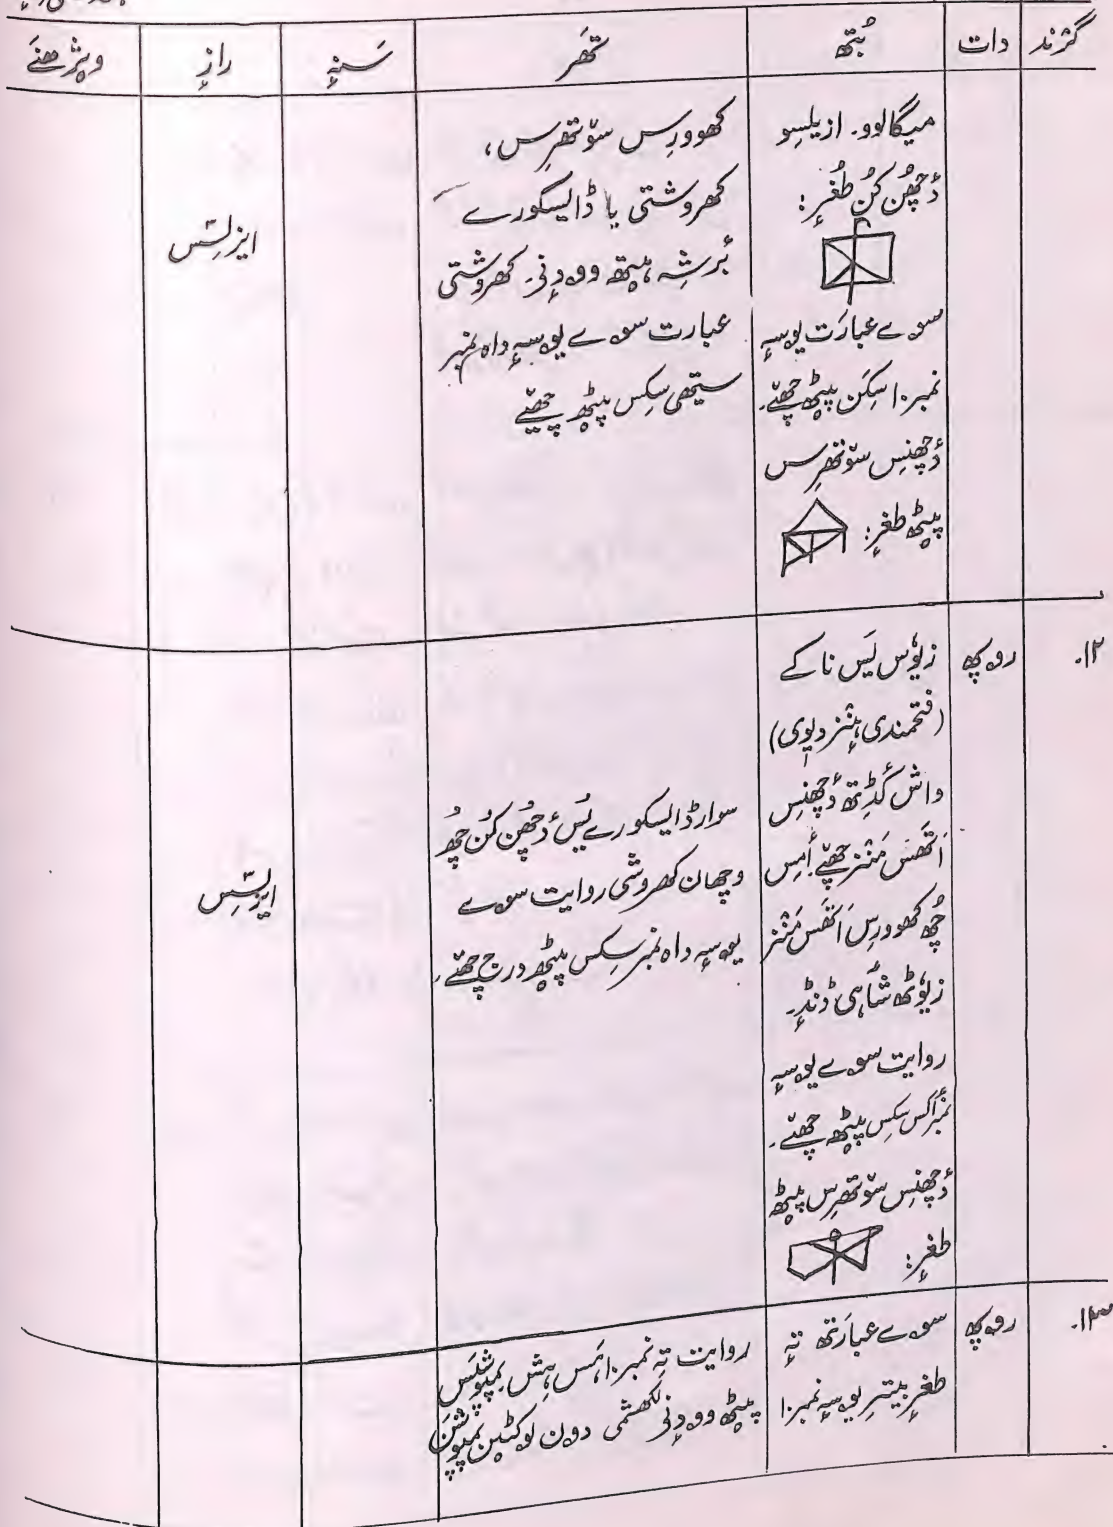 گرٛند دات بُتھ تھَر سَنہٕ رازٕ ویژھنَے
میگالوو۔ ازیلسو
دٔچھُن کُن طُغرٕ:
سوے عبارَت یوسہٕ
نمبر۱۰ سِکَن پیٹھ چھَے۔
دٔچھنِس سۆتھرِس
پیٹھ طغرٕ:
کھووٕرِس سۆتھرِس،
کھروشتی یا ڈایسکورے
بُرشہِ ہیتھ وودٕنی۔ کھروشتی
عبارت سوے یوسہٕ داہ نمبر
سیتھی سِکس پیٹھ چھَے
ایزلِسَس
۱۲۔ روپھ
زیوٗس یَس ناکے
(فتحمندی ہٕنز دیوی)
واش کٔڈِتھ دٔچھنِس
اَتھَس منٛز چھَے أمِس
چُھ کھووٕرِس اَتھَس منٛز
زیوٗٹھ شأہی ڈنڈٕ۔
روایت سوے یوسہٕ
نمبر أکِس سِکس پیٹھ چھَے۔
دٔچھنِس سۆتھرِس پیٹھ
طغرٕ:
سوار ڈایسکورے یُس دٔچھُن کُن چُھ
وچھان کھروشی روایت سوے
یوسہٕ داہ نمبر سِکس پیٹھ درج چھَے۔
ایزلِسَس
۱۳۔ روپھ
سوے عبارَتھ تہٕ
طغرٕ بیترِ یوسہٕ نمبر۱۰
روایت تہٕ نمبر۱۰ ہَس ہِش پمپوشَس
پیٹھ وودٕنی لکھشمی دون لوکٹین پمپوشن